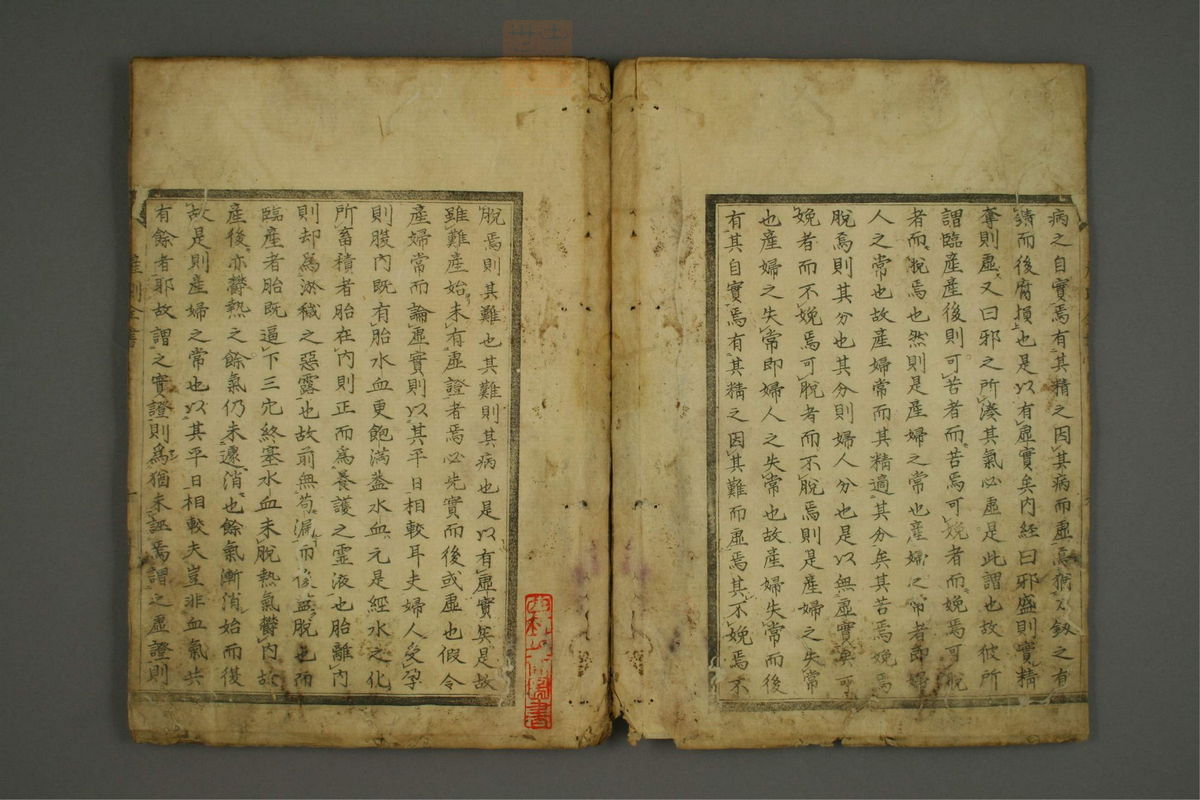 病之自實焉有其精之因其病而虛焉猶以釼之有
鏽而後腐損也是以有虛實矣内經曰邪盛則實精
奪則虛又曰邪之所湊其氣必虛是此謂也故彼所
謂臨産産後則可苦者而苦焉可娩者而娩焉可脫
者而脫焉也然則是産婦之常也産婦之常者即婦
人之常也故産婦常而其精過其分矣其苦焉娩焉
脫焉則其分也其分則婦人分也是以無虛實矣可
娩者而不娩焉可脫者而不脫焉則是産婦之失常
也産婦之失常即婦人之失常也故産婦失常而後
有其自實焉有其精之因其難而虛焉其不娩焉不
脫焉則其難也其難則其病也是以有虛實矣是故
雖難産始未有虛證者焉必先實而後或虛也假令
産婦常而論虛實則以其平日相較耳夫婦人受孕
則腹内既有胎水血更飽滿蓋水血元是經水之化
所畜積者胎在内則正而為養護之霊液也胎離内
則却為淤穢之惡露也故前無苟漏而後盡脫也而
臨産者胎既逼下三穴終塞水血未脫熱氣欝内故
産後亦欝熱之餘氣仍未遽消也餘氣漸消始而復
故是則産婦之常也以其平日相較夫豈非血氣共
有餘者耶故謂之實證則為猶未誣焉謂之虛證則